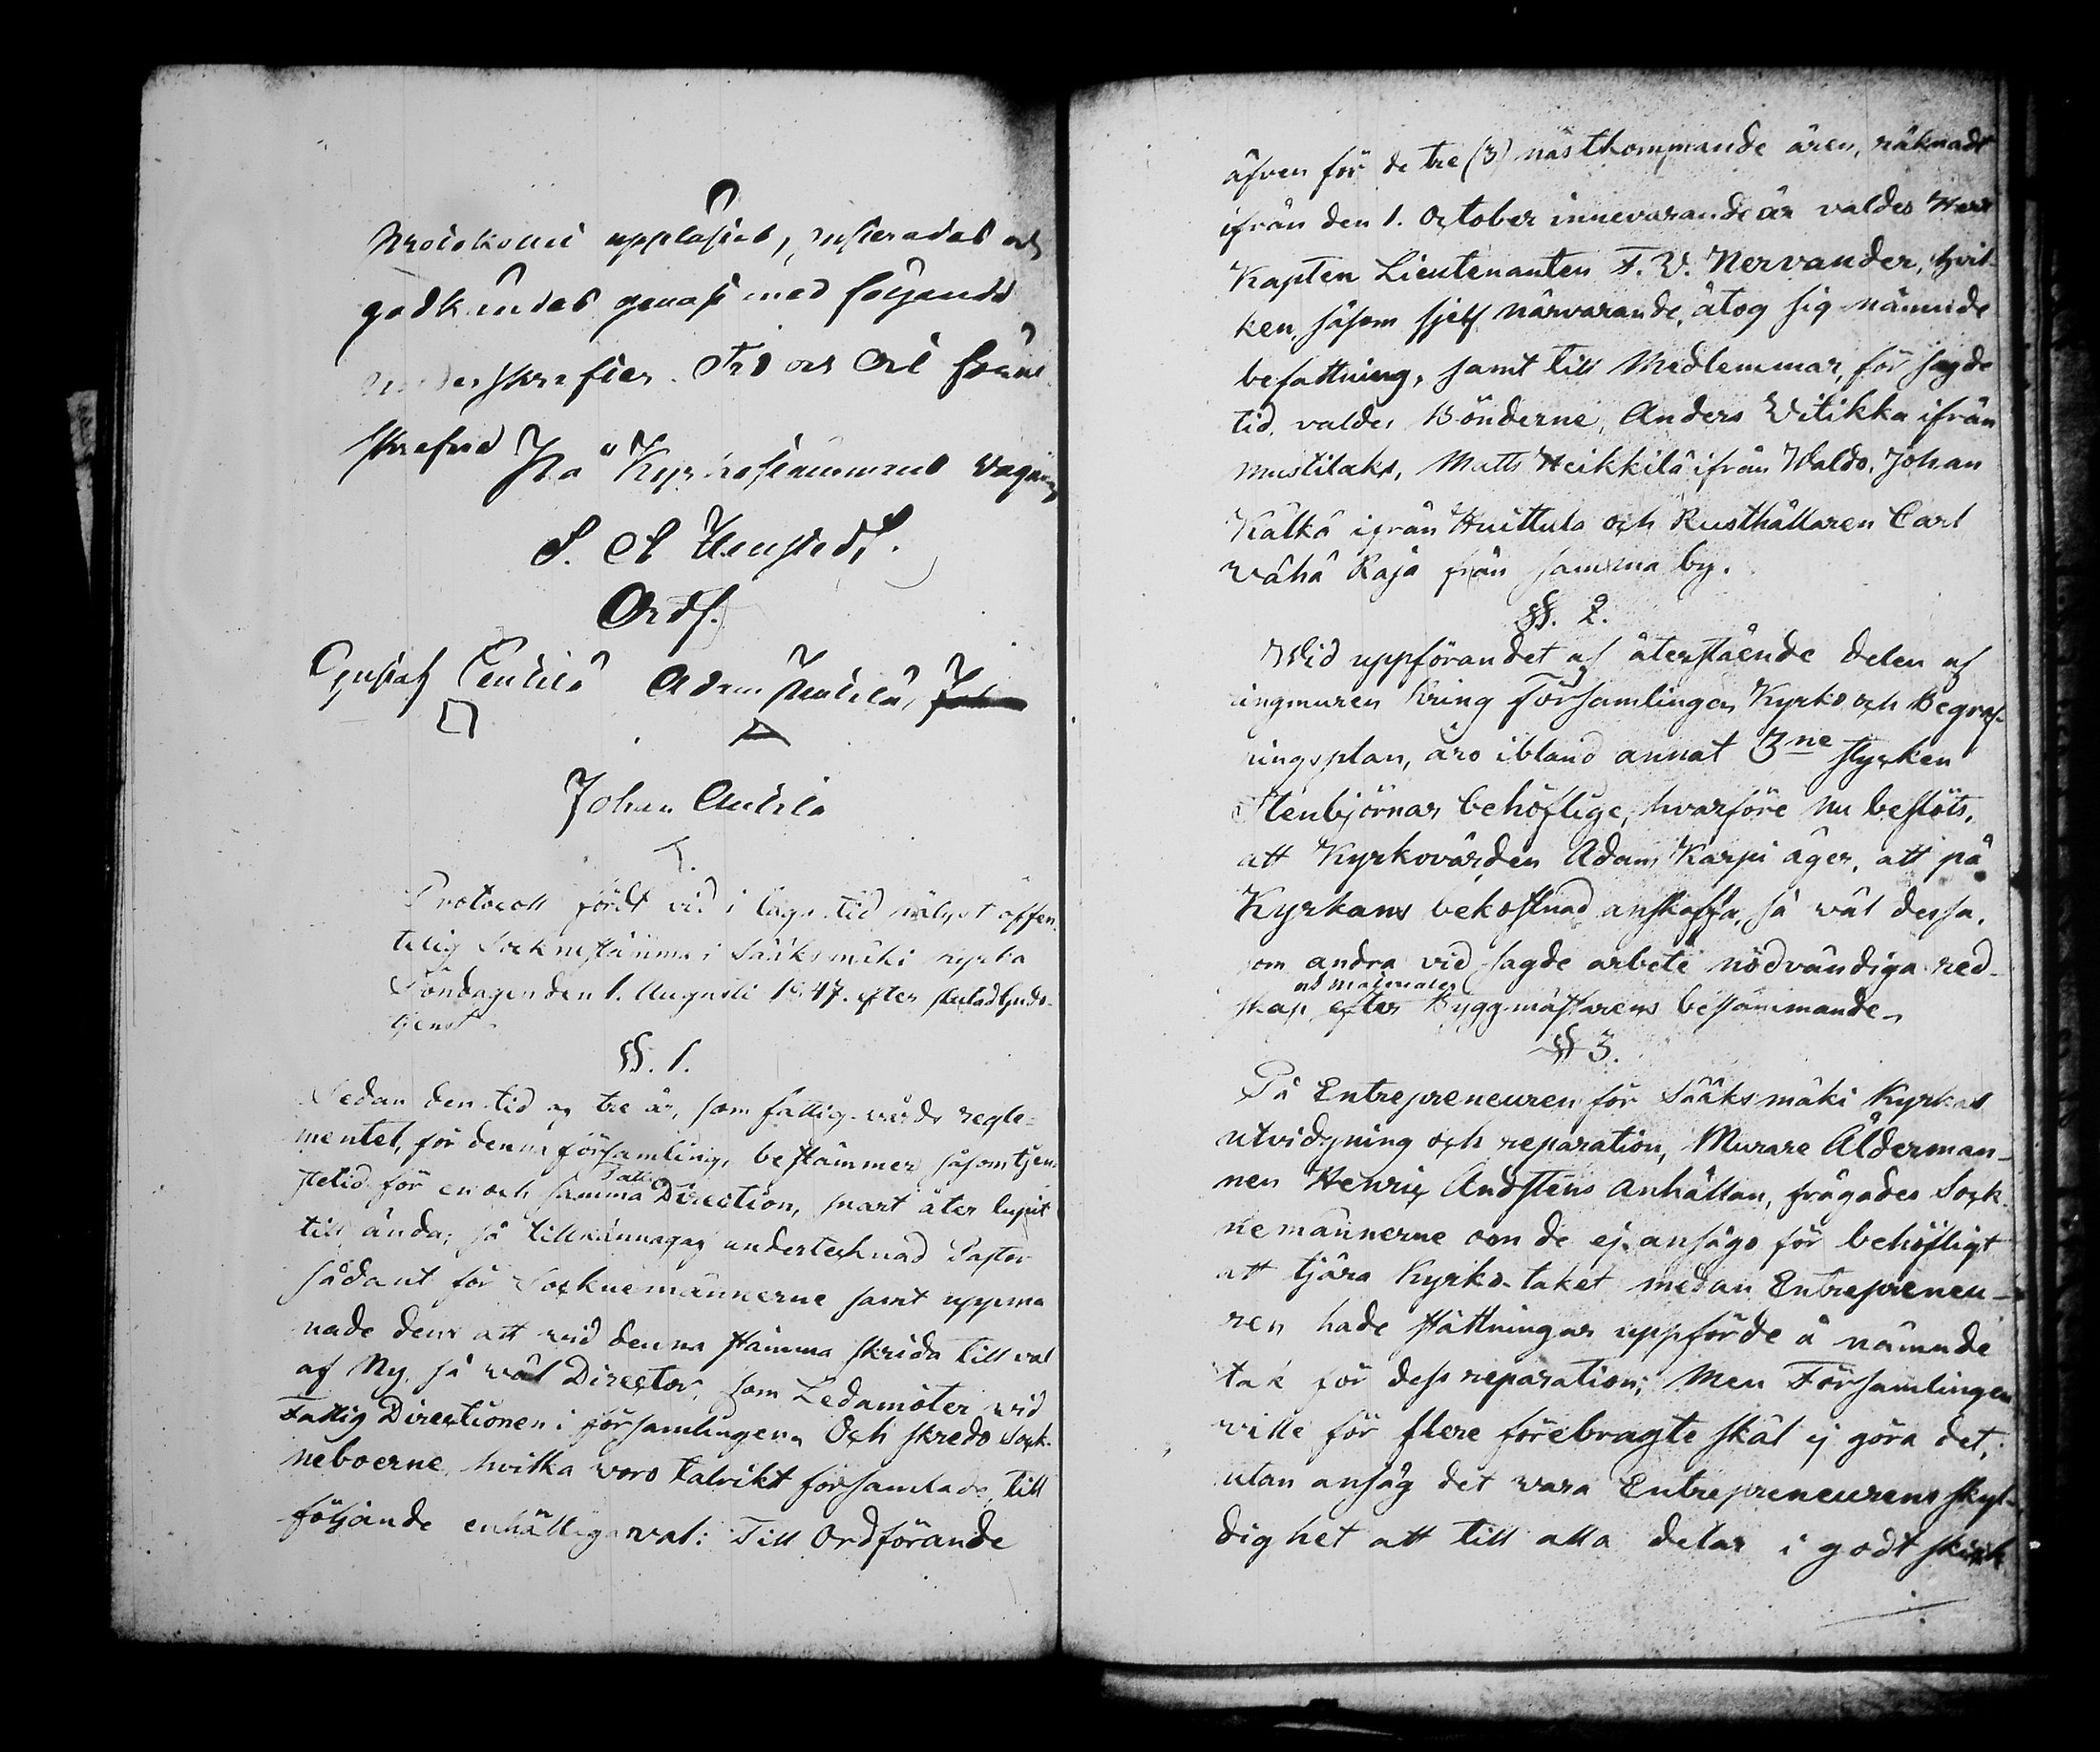 Protokollet uppläsies, justerades och
godkändes genast med följande
underskrefter. Tid och Ort förut
skrefne
På Kyrkostämmans vägnar
Ordf.
Gustaf Adam Johan
Johan Anttila
Protocoll fördt vid i laga tid pålyst offen-
telig Socknestämma i Sääksmäki kyrka
Söndagen den 1. Augusti 1847. efter slutad Guds-
tjenst.
§§. 1.
Sedan den tid af tre år, som fattig-vårds regle-
mentet, för denna församling, bestämmer såsom tjen-
stetid för en och samma Fattig Direction, snart åter lupit
till ända; så tillkännagaf undertecknad Pastor
sådant för Socknemännerne samt uppma
nade dem att vid denna stämma skrida till val
af Ny, så wäl Director, som Ledamöter vid
Fattig Directionen i församlingen. Och skredo Sock-
neboerne, hvilka voro talrikt församlade, till
följande enhälliga val: Till Ordförande
äfven för de tre (3) nästkommande åren, räknadt
ifrån den 1. October innevarande år valdes Herr
Kapten Lieutenanten F. W. Nervander, hvil-
ken, såsom sjelf närvarande, åtog sig nämnde
befattning, samt till Medlemmar, för sagde
tid. valdes Bönderne, Anders Witikka ifrån
Mustilaks, Matts Heikkilä ifrån Waldo, Johan
Kälkä ifrån Huittula och Rusthållaren Carl
Wähä Raja från samma by.
§§. 2.
Wid uppförandet af återstående delen af
ringmuren kring Församlingens Kyrka och Begraf-
ningsplan, äro ibland annat 3ne stycken
Stenbjörnar behöflige, hvarföre nu beslöts,
att Kyrkovärden Adam Karpi äger, att på
Kyrkans bekostnad anskaffa, så wäl dessa,
som andra vid sagde arbete nödvändiga red-
och materialer
skap efter Byggmästarens bestämmande.
§§ 3.
På Entrepreneuren för Sääksmäki Kyrkas
utvidgning och reparation, Murare Ålderman-
nen Henric Andstens Anhållan, frågades Sock-
nemännerne om de ej ansågo för behöfligt
att tjära Kyrko-taket medan Entrepreneu-
ren hade ställningar uppförde å nämnde
tak för dess reparation; Men Församlingen
ville för flere förebragte skäl ej göra det,
utan ansåg det vara Entrepreneurens skyl-
dighet att till alla delar i godt skick